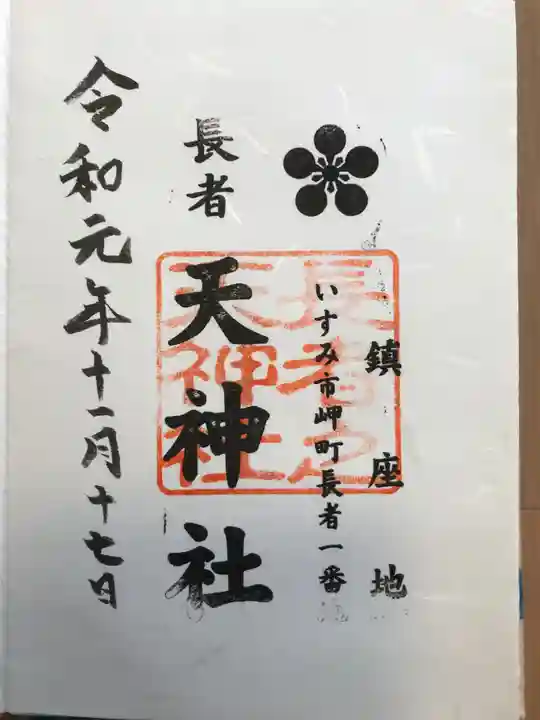 鎮座地
いすみ市岬町長者一番
長者
天神社
長者之
天神社
令和元年十一月十七日